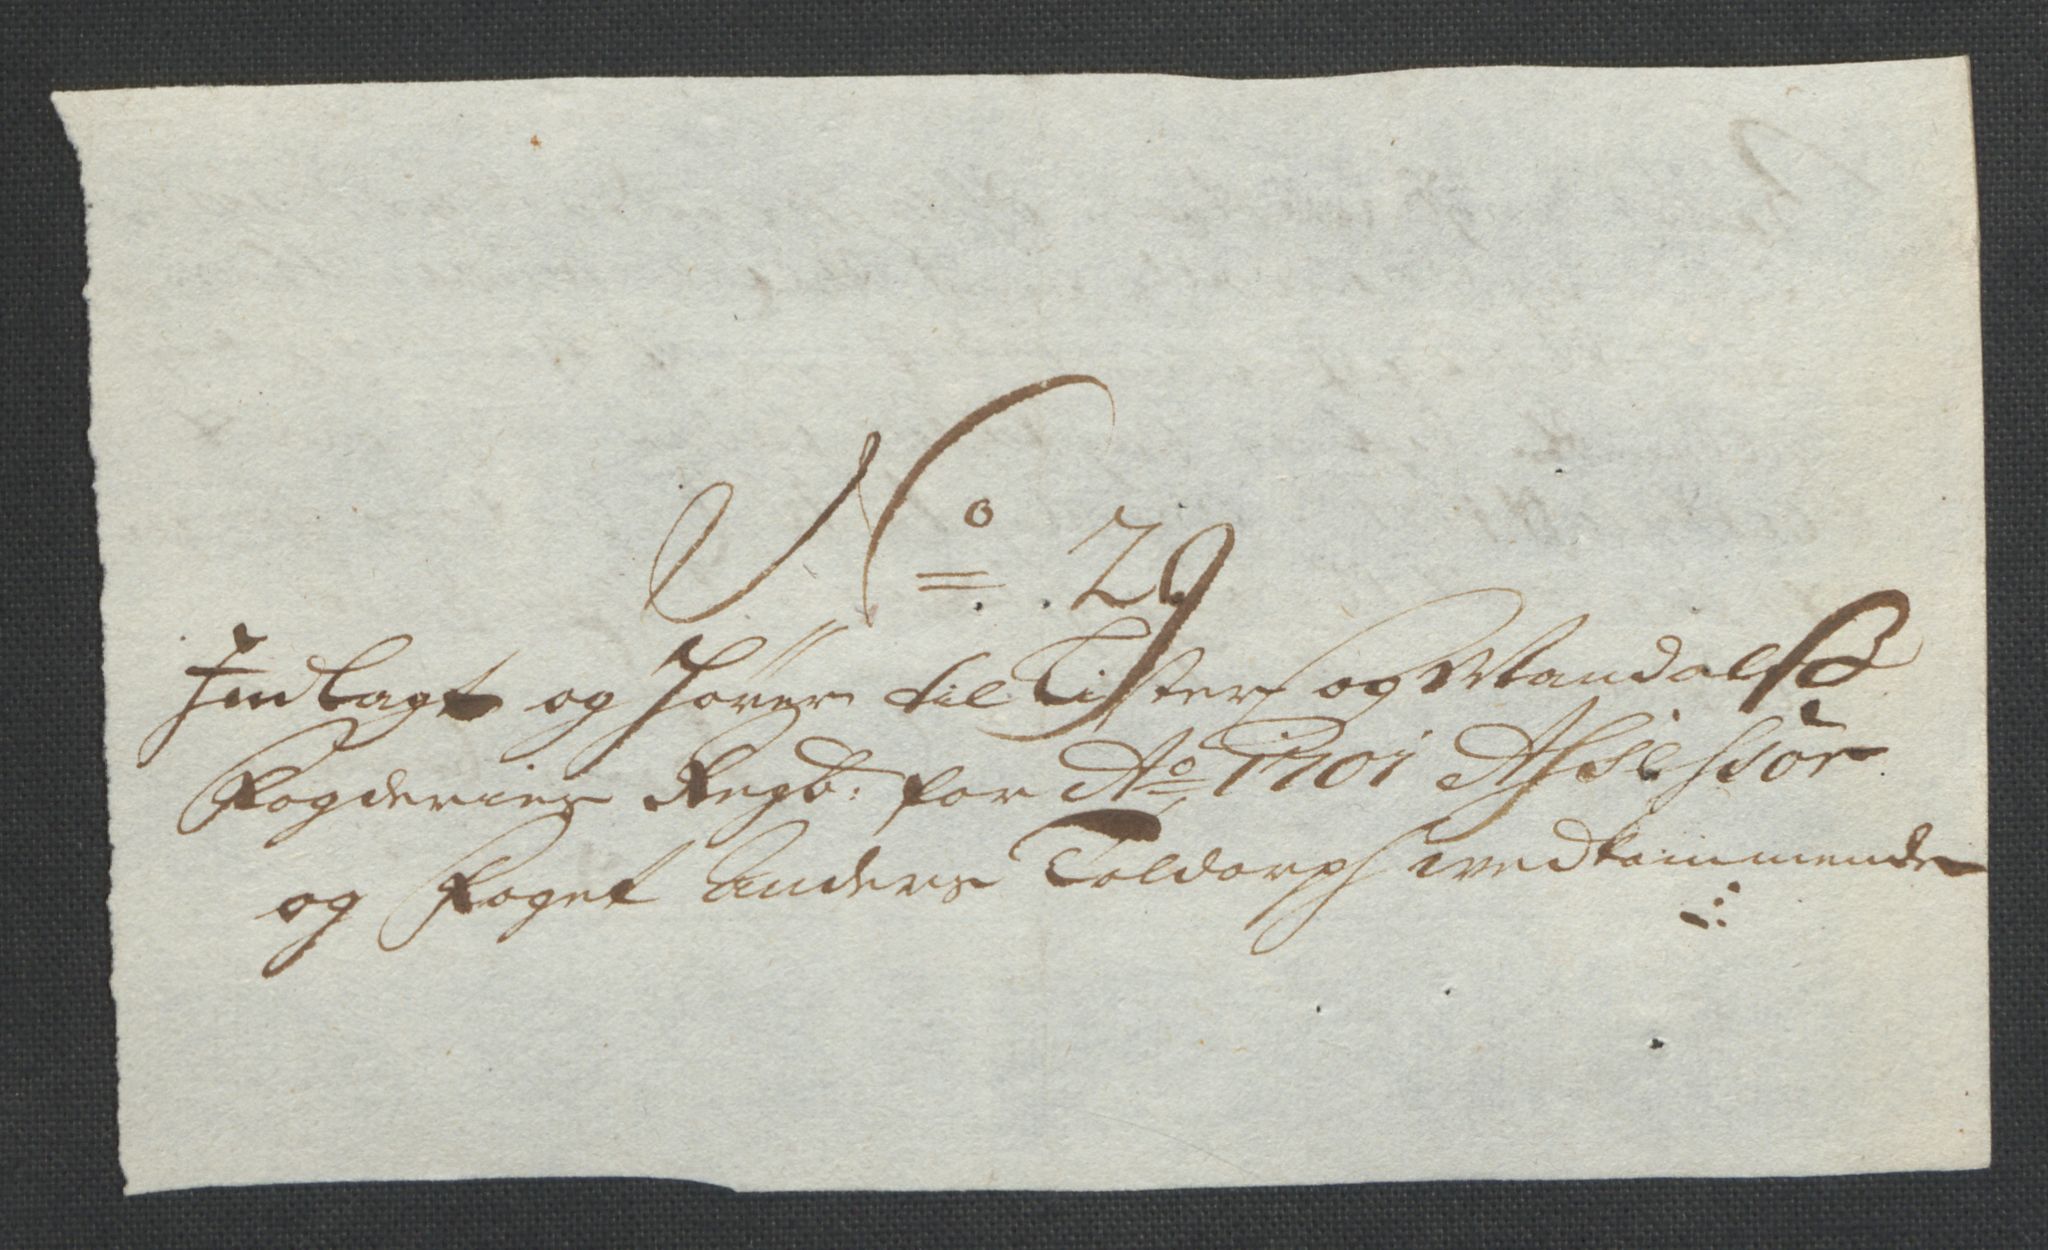 No. 29
Indlagt og Hører til Listers og Mandals
Fogderies Regb: for Ao 1701 Assessor
og Foget Anders Toldorph vedkommende